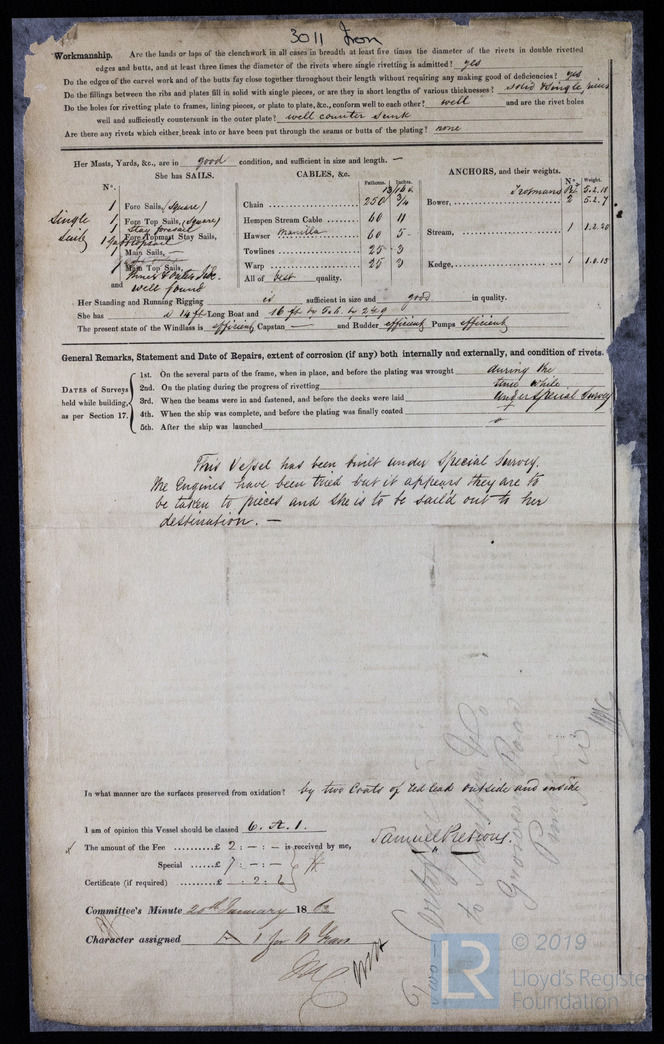 3011 Iron
Workmanship. Are the lands or laps of the clenchwork in all cases in breadth at least five times the diameter of the rivets in double rivetted
edges and butts, and at least three times the diameter of the rivets where single rivetting is admitted? yes
Do the edges of the carvel work and of the butts fay close together throughout their length without requiring any making good of deficiencies? yes
Do the fillings between the ribs and plates fill in solid with single pieces, or are they in short lengths of various thicknesses? solid & single pieces
Do the holes for rivetting plate to frames, lining pieces, or plate to plate, &c., conform well to each other? well and are the rivet holes
well and sufficiently countersunk in the outer plate? well counter sunk
Are there any rivets which either break into or have been put through the seams or butts of the plating? none
Her Masts, Yards, &c., are in good condition, and sufficient in size and length. —
She has SAILS. CABLES, &c. ANCHORS, and their weights.
N°. Fathoms. Inches. N°. Weight.
1 Fore Sails, (Square) Chain 250 3/4 Bower, Trotmans 5.2.18
2 5.2.7
Single 1 Fore Top Sails, (Square) Hempen Stream Cable 60 11
Suit 1 Fore Topmast Stay Sails, Stay foresail Hawser Manilla 60 5 - Stream, 1 1.2.20
1 gafftopsail
1 Main Sails, — Towlines 25 - 3
1 Main Top Sails, Warp 25 3 Kedge, 1 1.0.13
and well found All of best quality.
Her Standing and Running Rigging is sufficient in size and good in quality.
She has a 14 ft Long Boat and 16 ft
The present state of the Windlass is efficient Capstan — and Rudder efficient Pumps efficient
General Remarks, Statement and Date of Repairs, extent of corrosion (if any) both internally and externally, and condition of rivets.
DATES of Surveys held while building, as per Section 17.
1st. On the several parts of the frame, when in place, and before the plating was wrought during the
2nd. On the plating during the progress of rivetting time while
3rd. When the beams were in and fastened, and before the decks were laid under special survey
4th. When the ship was complete, and before the plating was finally coated
5th. After the ship was launched
This Vessel has been built under Special Survey.
The Engines have been tried but it appears they are to
be taken to pieces and she is to be sail'd out to her
destination. —
In what manner are the surfaces preserved from oxidation? by two Coats of red lead outside and inside
I am of opinion this Vessel should be classed 6. A. 1.
The amount of the Fee £ 2 : - : - is received by me,
Samuel Pretious.
Special £ 7 : - : -
Certificate (if required) £ - : 2 : 6
Committee's Minute 20th January 1863
Character assigned A 1 for
© 2019
LR
Lloyd's Register
Foundation